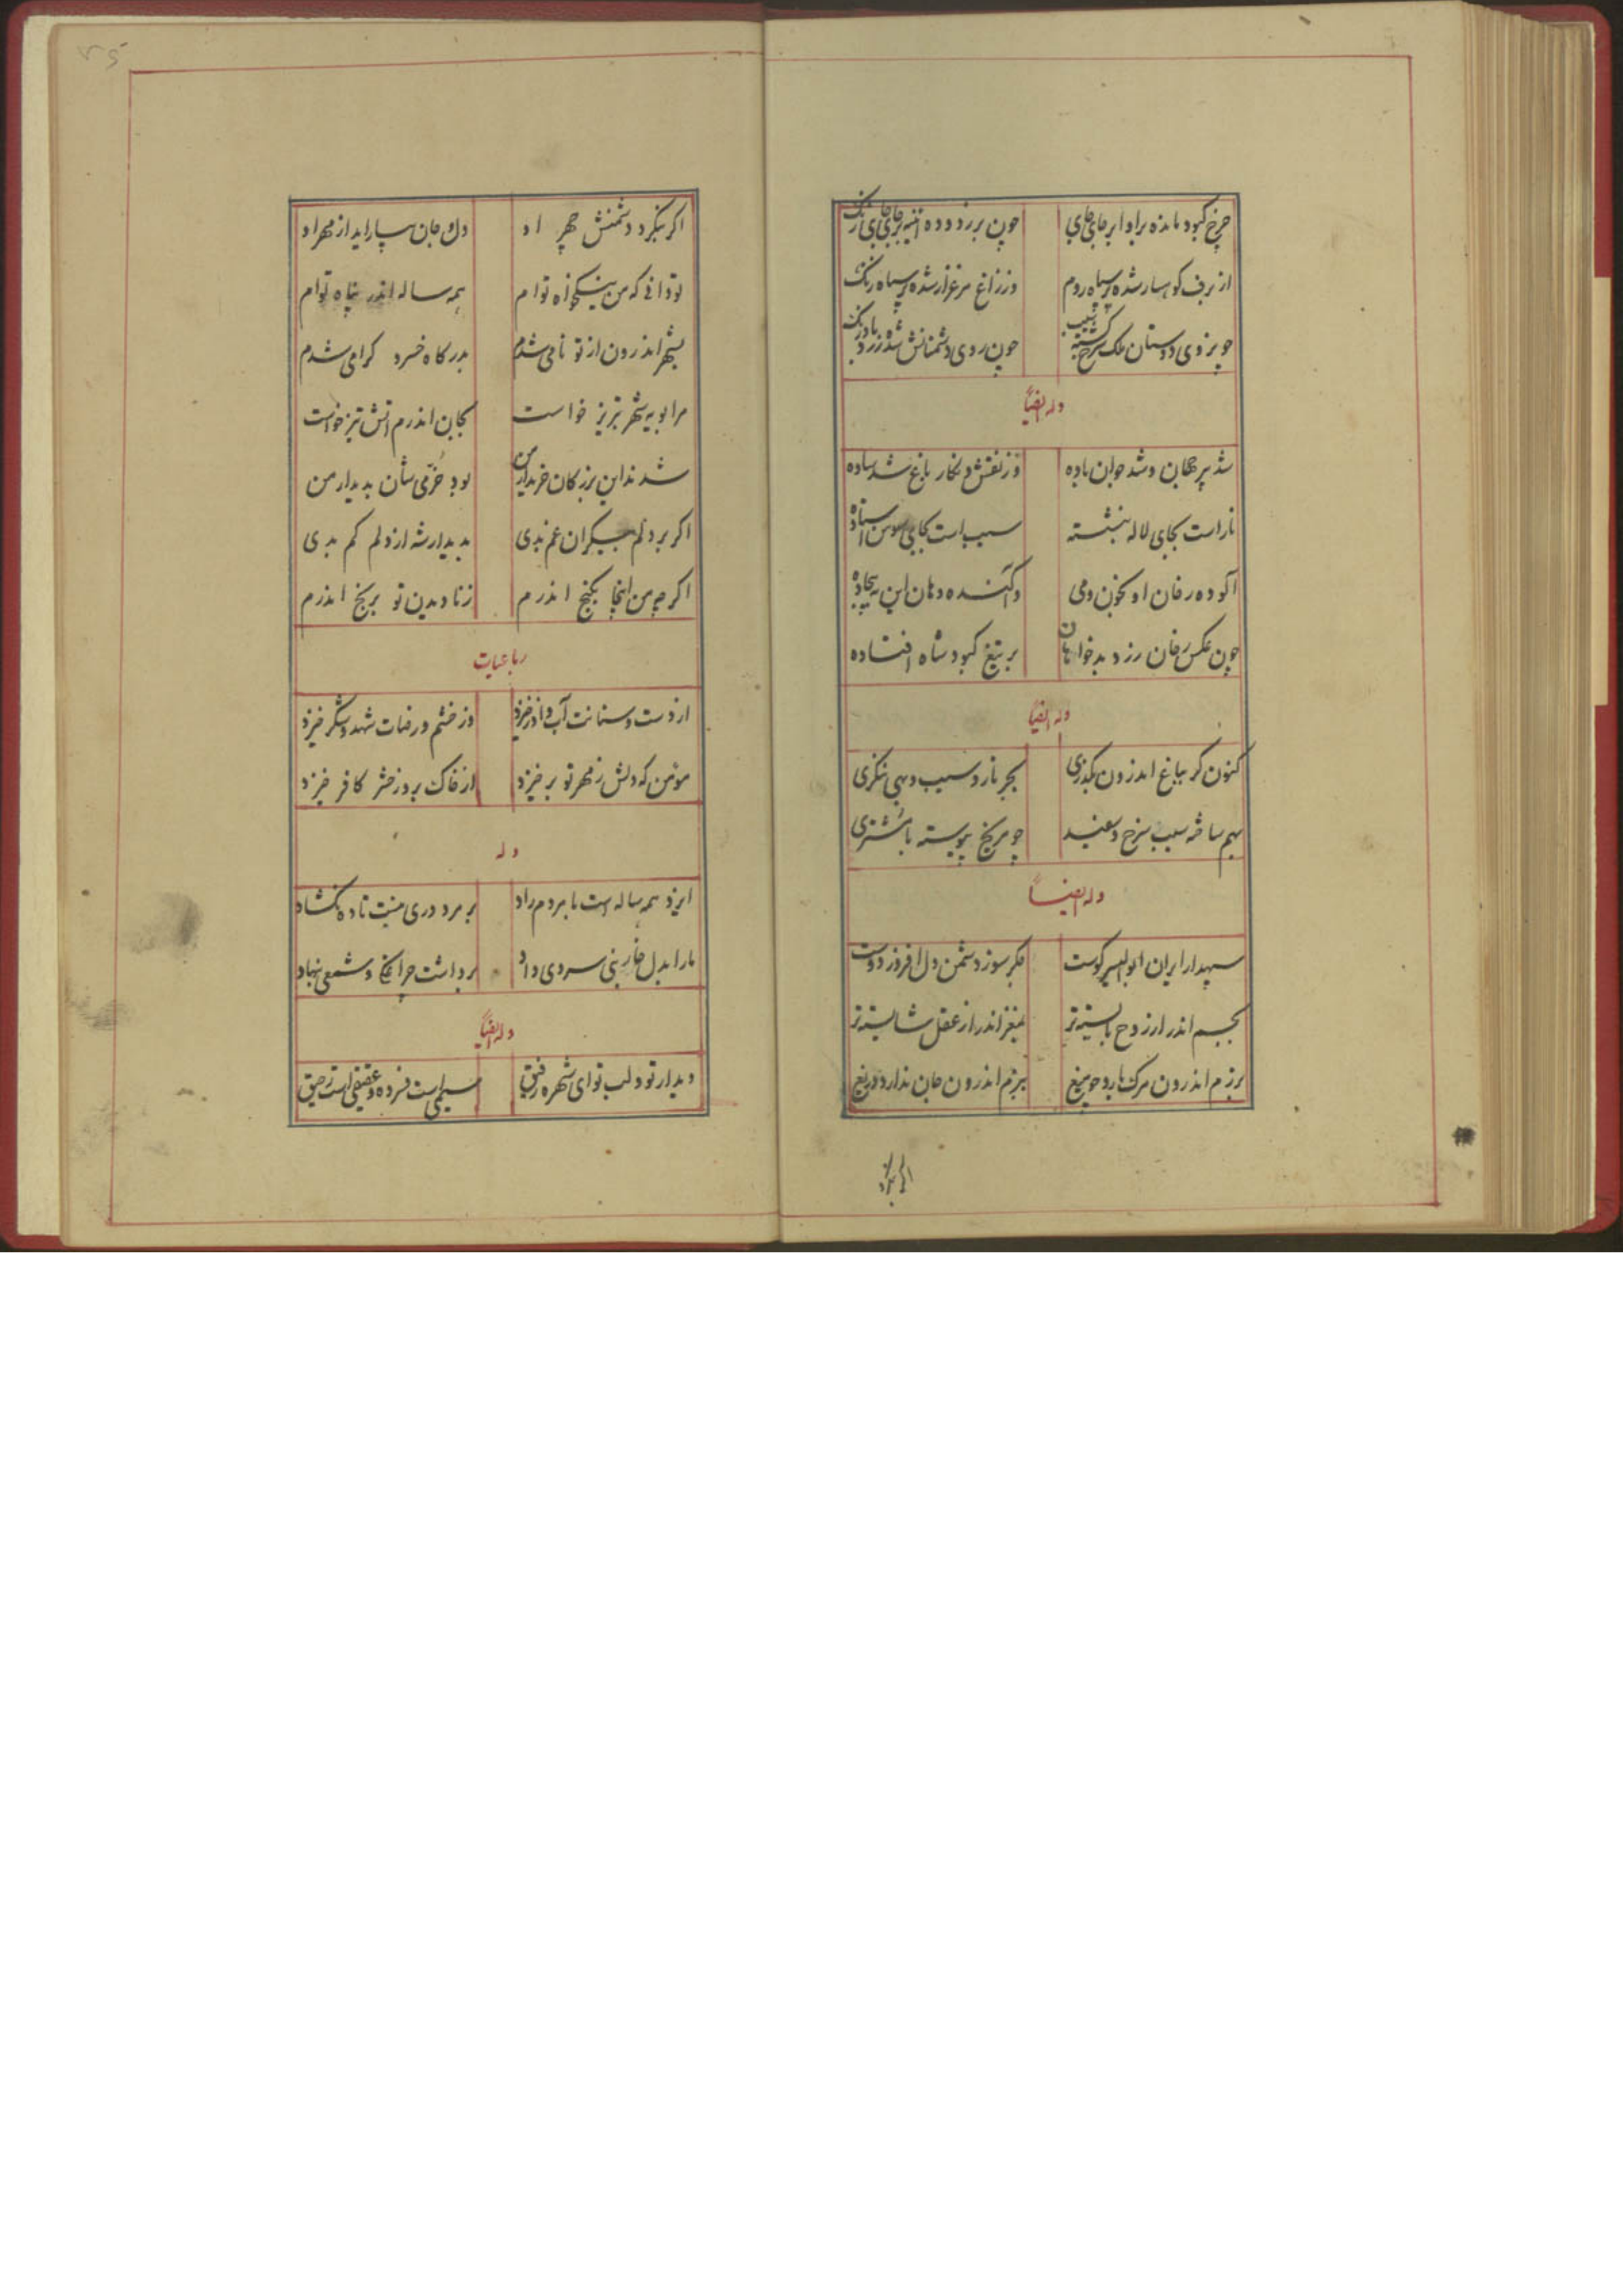 چرخ کبود مانده براو ابر جای جای
چون بر زدوده آئینه بر جای جای زنگ
از برف کوهسار شده پر سپاه روم
وز زاغ مرغزار شده پر سپاه زنگ
چو بر روی دوستان ملک سرخ گشته سیب
چون روی دشمنانش شده زرد بادرنگ
وله ایضاً
شد پیر جهان و شد جوان باده
وز نقش و نکار باغ شد ساده
نار است بجای لاله بنشسته
سیب است بجای سوسن استاده
آلوده رخان او بخون و می
واکنده دهان این به بیجاده
چون عکس رخان زرد بدخواهان
بر تیغ کبود شاه افتاده
وله ایضاً
کنون کر بباغ اندرون بکذری
بجز نار و سیب و بهی ننکری
بهم ساخته سیب سرخ و سفید
چو مریخ پیوسته با مشتری
وله ایضاً
سپهدار ایران ابوالیسر کوست
جکر سوز دشمن دل افروز دوست
بجسم اندر از روح بایسته تر
بمغز اندر از عقل شایسته تر
برزم اندرون مرک بارد چو میغ
ببزم اندرون جان ندارد دریغ
اکر بنکرد
اکر بنکرد دشمنش چهر او
دل و جان بیاراید از مهر او
تو دانی که من نیکخواه توام
همه ساله اندر پناه توام
بشهر اندرون از تو نامی شدم
بدرکاه خسرو کرامی شدم
مرا بویه شهر تبریز خواست
بجان اندرم آتش تیز خواست
شدند این بزرکان خریدار من
بود خرّمی شان بدیدار من
اکر بر دلم بیکران غم بدی
بدیدار شه از دلم کم بدی
اکر چه من اینجا بکنج اندرم
ز نادیدن تو برنج اندرم
رباعیات
از دست و سنانت آب و آذر خیزد
وز خشم و رضات شهد و شکر خیزد
مومن که دلش ز مهر تو بر خیزد
از خاک بروز حشر کافر خیزد
وله
ایزد همه ساله است با مردم راد
بر مرد دری نبست تا ده نکشاد
ما را بدل خاربنی سروی داد
برداشت چراغی و شمعی بنهاد
وله ایضاً
دیدار تو و لب تو ای شهره رفیق
سیمی است فسرده و عقیقی است رحیق